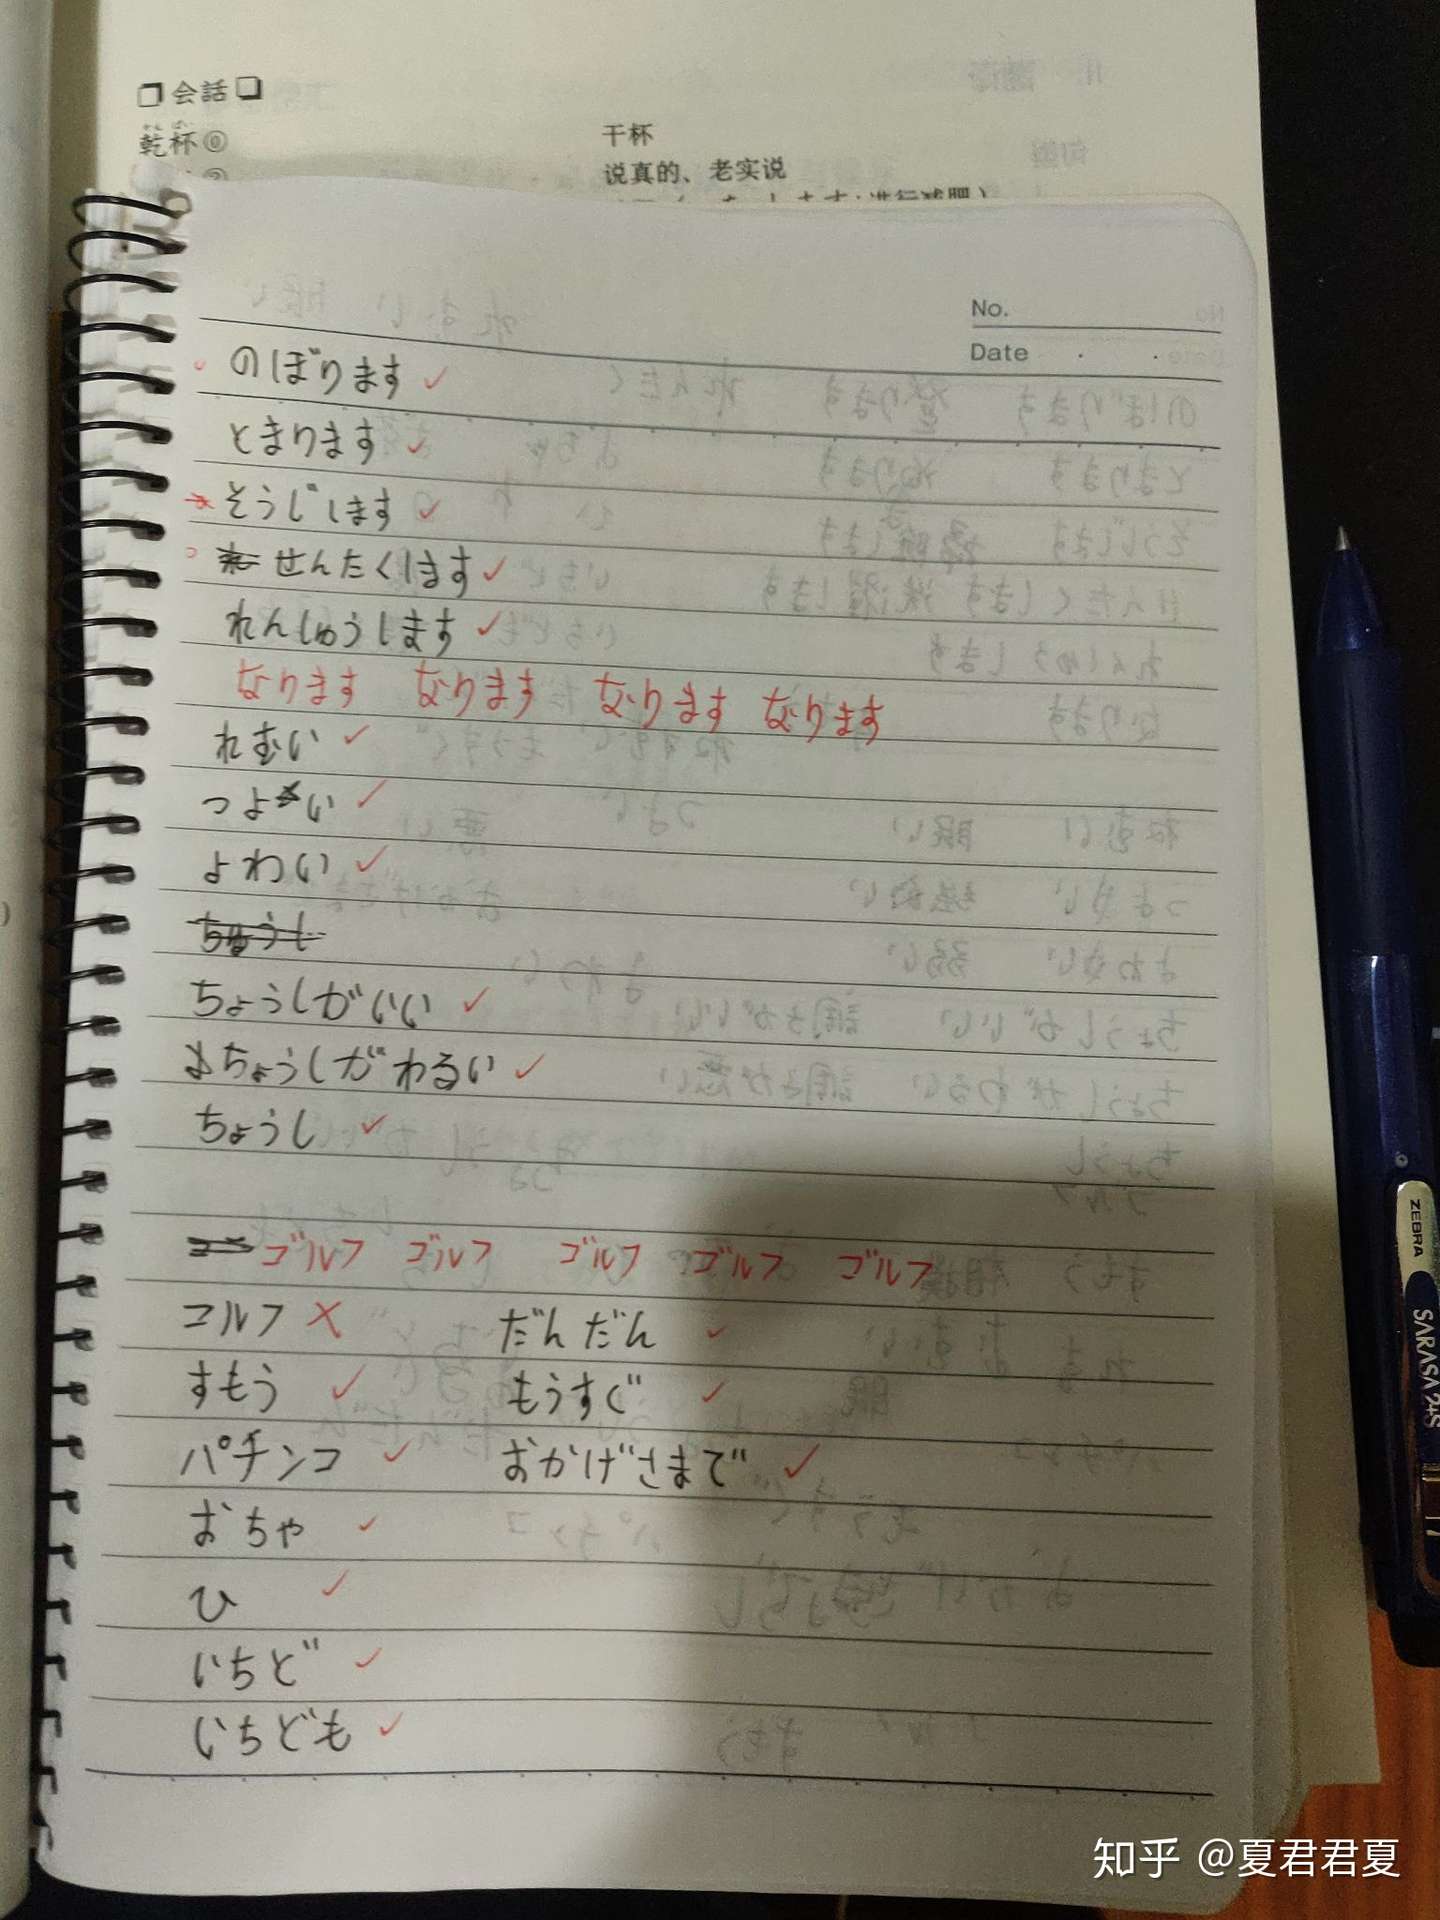 会話
乾杯⓪ 干杯
かんぱい
说真的、老实说
No.
Date
のぼります
とまります
そうじします
せんたくします
れんしゅうします
なります なります なります なります
れむい
つよい
よわい
ちゅうし
ちょうしがいい
ちょうしがわるい
ちょうし
ゴルフ ゴルフ ゴルフ ゴルフ ゴルフ
コルフ だんだん
すもう もうすぐ
パチンコ おかげさまで
おちゃ
ひ
いちど
いちども
ZEBRA
SARASA 2+S
知乎 @夏君君夏